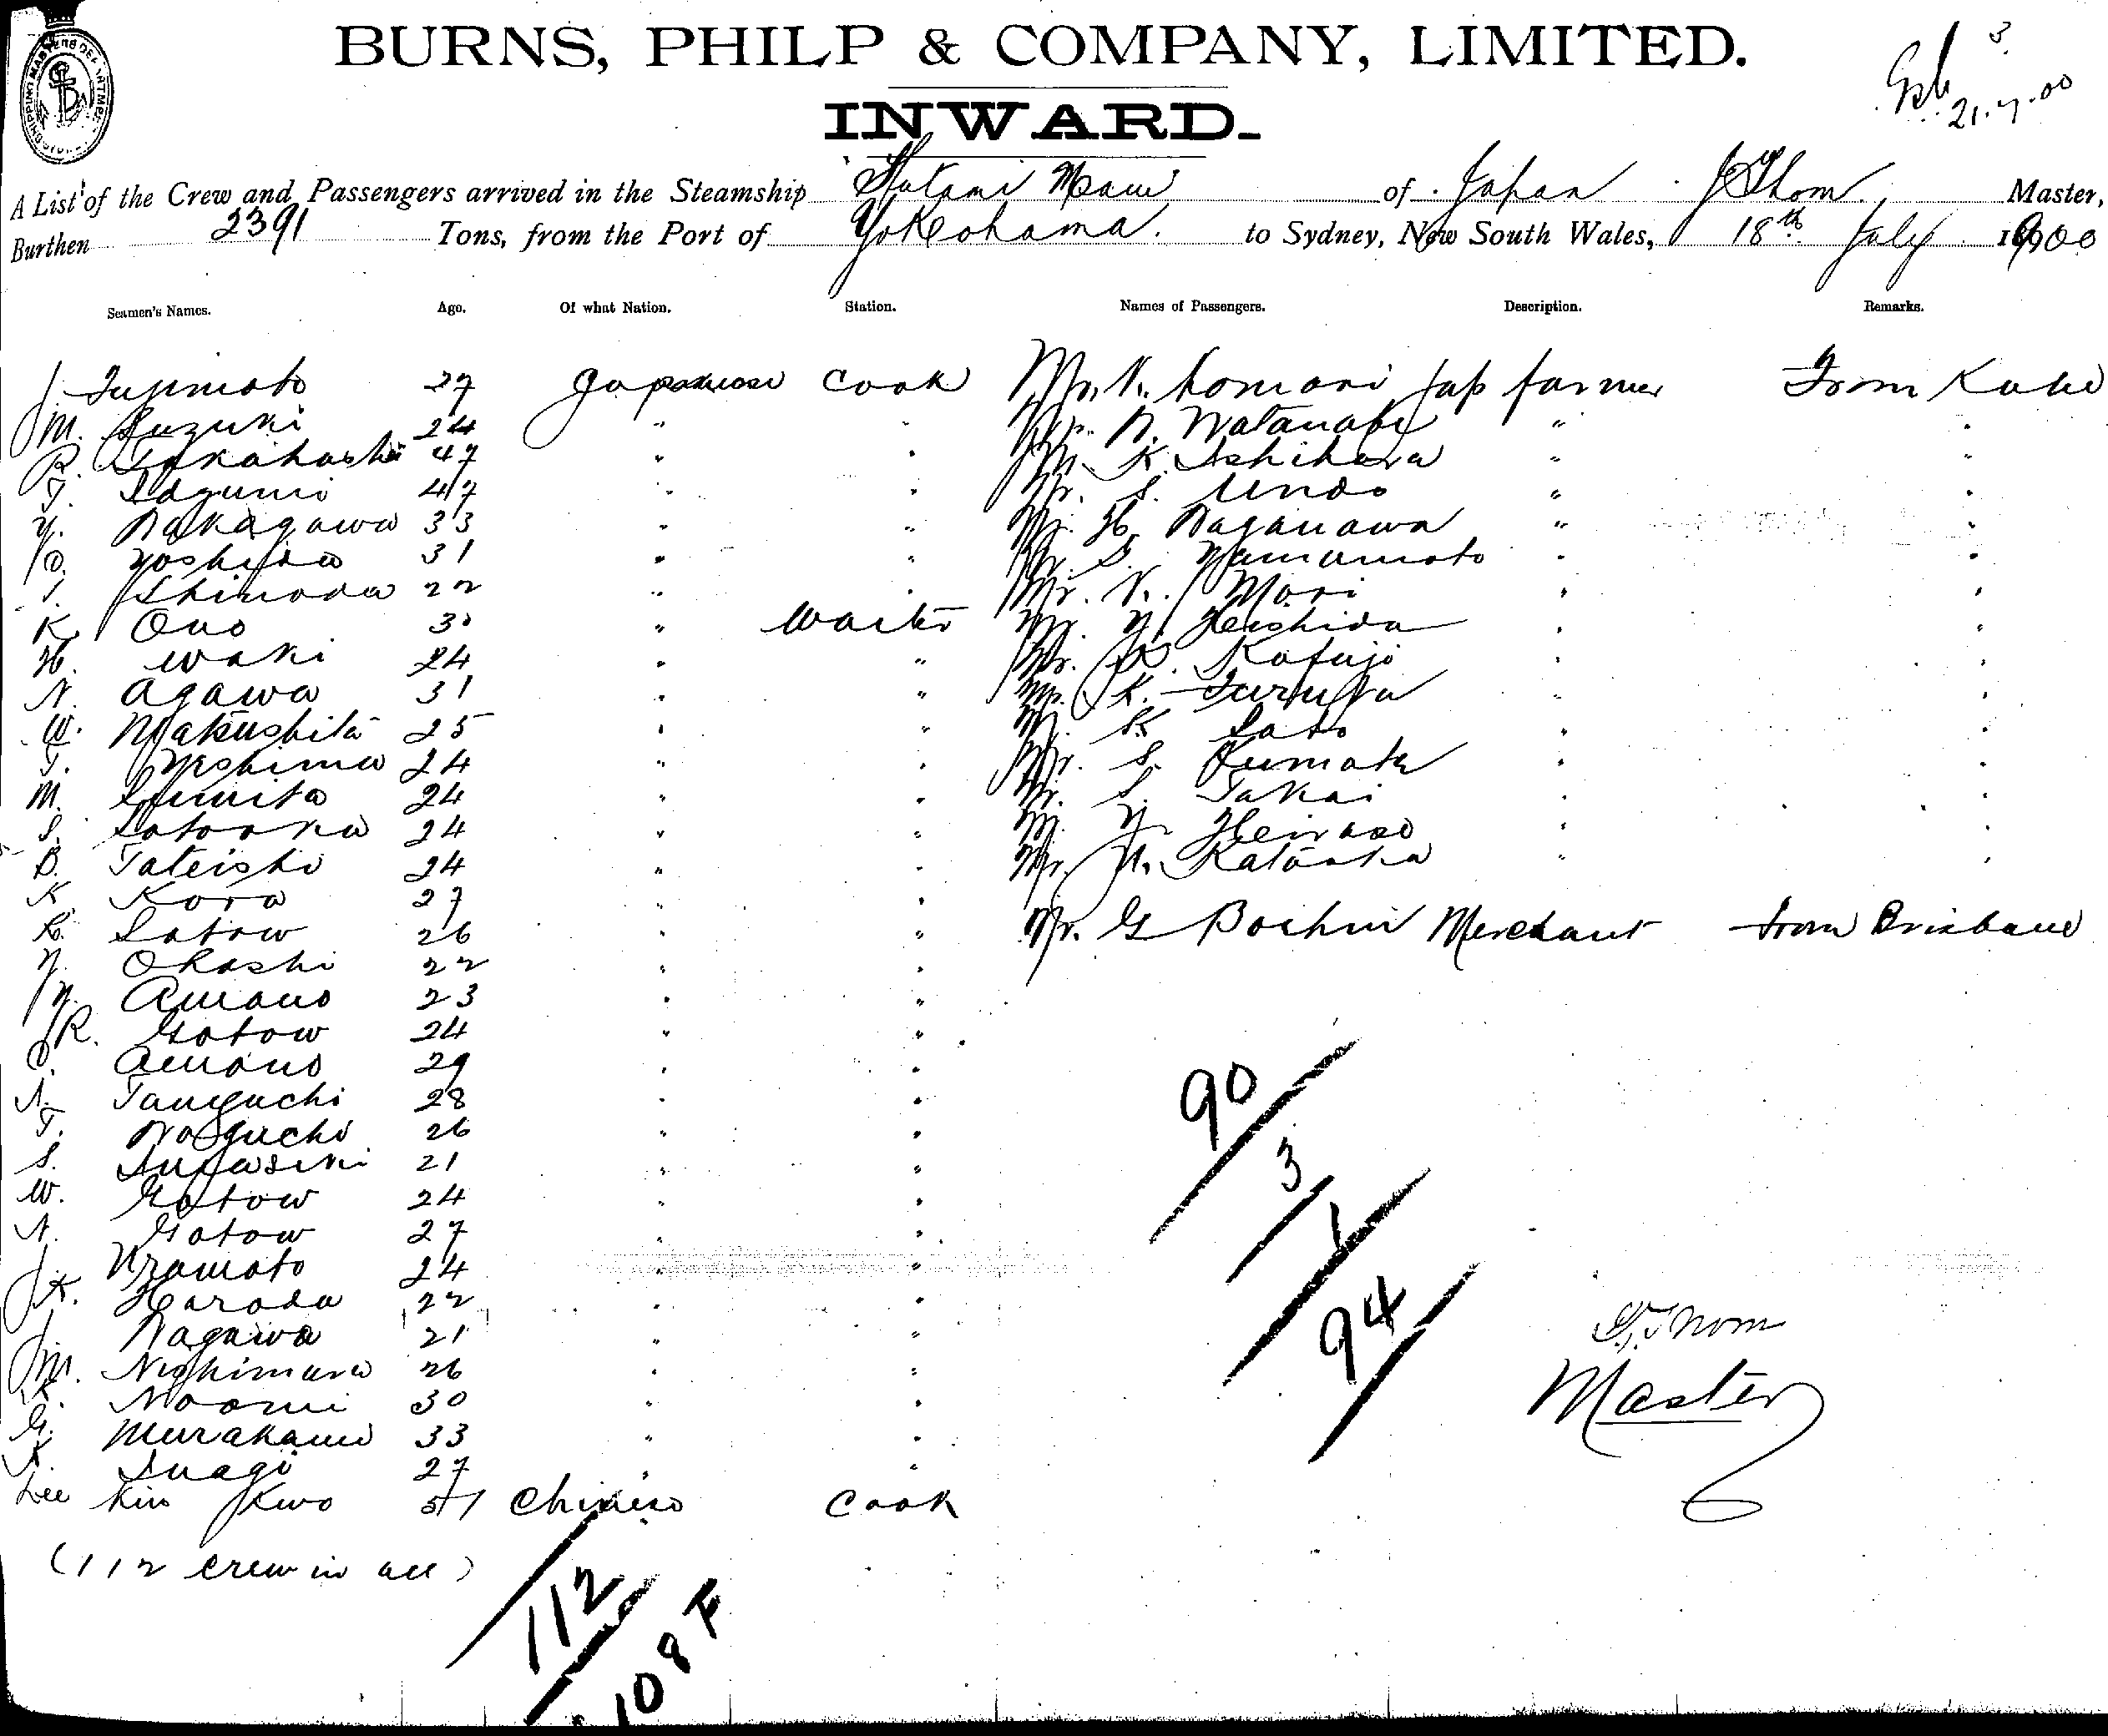 BURNS, PHILP & COMPANY, LIMITED.
INWARD.
3
21.7.00
A List of the Crew and Passengers arrived in the Steamship Futami Maru of Japan J Thom Master,
Burthen 2391 Tons, from the Port of Yokohama. to Sydney, New South Wales, 18th July 1900
Seamen's Names. Age. Of what Nation. Station. Names of Passengers. Description. Remarks.
J. Fujimoto 27 Japanese Cook Mr. N. Komori Jap farmer From Kobe
M. Suzuki 24 " " Mr. N. Watanabe " "
R. Takahashi 47 " " Mr. K. Ishihara " "
T. 47 " " Mr. S. Undo " "
Y. Nakagawa 33 " " Mr. H. Naganawa " "
O. Yoshida 31 " " Mr. S. Yamamoto " "
T. Shimoda 22 " " Mr. N. Mori " "
K. Ono 30 " Waiter Mr. Y. " "
H. Waki 24 " " Mr. Kofuji " "
N. Agawa 31 " " Mr. K. Furuta " "
W. Makushita 25 " " Mr. K. Sato " "
T. 24 " " Mr. S. " "
M. Sumita 24 " " Mr. S. Takai " "
S. Sotooka 24 " " Mr. Y. " "
B. Tateishi 24 " " Mr. Kataoka " "
K. Kora 27 " "
Satow 26 " " Mr. G Merchant from Brisbane
Y. Ohashi 22 " "
Y. Amano 23 " "
R. Gotow 24 " "
O. Amano 29 " "
N. Taniguchi 28 " "
T. Noguchi 26 " "
S. 21 " "
W. Gotow 24 " "
N. Gotow 27 " "
J. Uramoto 24 " "
K. Harada 22 " "
J. Nagawa 21 " "
M. Nishimura 26 " "
K. Naomi 30 " "
G. Murakami 33 " "
K. Suagi 27 " "
Lee Kin Kwo 51 Chinese Cook
90
3
1
94
J. Thom
Master
(112 crew in all)
112
108 F